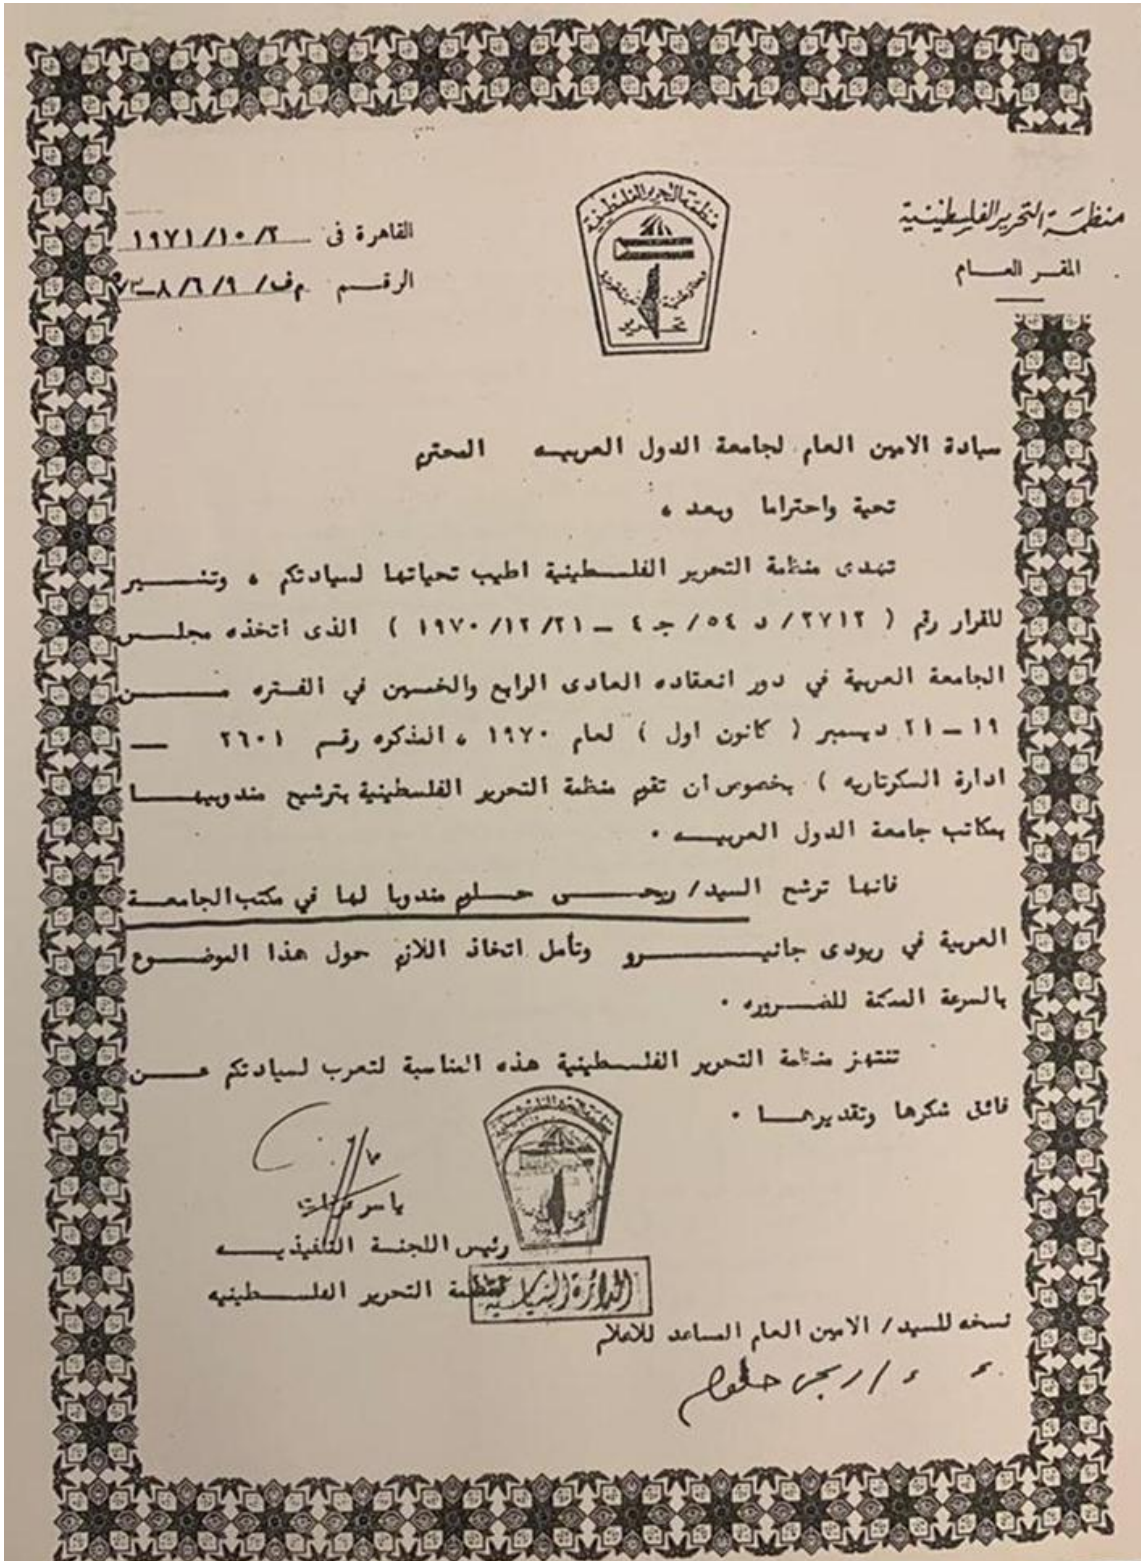 منظمة التحرير الفلسطينية
المقر العـــام
القاهرة فى ١٩٧١/١٠/٢
الرقـــم م ف/ ٨/٦/٩ــ
منظمة التحرير الفلسطينية
وحدة وطنية تعبئة قومية
تحـــرير
سيادة الامين العام لجامعة الدول العربيـــه المحترم
تحية واحتراما وبعد ،
تهدى منظمة التحرير الفلســطينية اطيب تحياتها لسيادتكم ، وتشـــــير
للقرار رقم ( ٢٧١٢/ د ٥٤/ جـ ٤ ــ ١٩٧٠/١٢/٢١ ) الذى اتخذه مجلـــس
الجامعة العربية في دور انعقاده العادى الرابع والخمسين في الفـتره مـــــن
١٩ ــ ٢١ ديسمبر ( كانون اول ) لعام ١٩٧٠ ، المذكره رقـــم ٢٦٠١ ـــ
ادارة السكرتاريه ) بخصوص ان تقوم منظمة التحرير الفلسطينية بترشيح مندوبيهـــا
بمكاتب جامعة الدول العربيـــه ٠
فانها ترشح السيد/ ربحـــــى حـــلوم مندوبا لها في مكتب الجامعـــة
العربية في ريودى جانيـــــــرو وتأمل اتخاذ اللازم حول هذا الموضـــوع
بالسرعة الممكنة للضـــروره ٠
تنتهز منظمة التحرير الفلســطينية هذه المناسبة لتعرب لسيادتكم عـــــن
فائق شكرها وتقديرهـــا ٠
ياسر عرفات
رئيس اللجنـــة التنفيذيـــه
لمنظمة التحرير الفلـــسطينيه
الدائرة السياسية
نسخه للسيد/ الامين العام المساعد للاعلام
ربحي حلوم